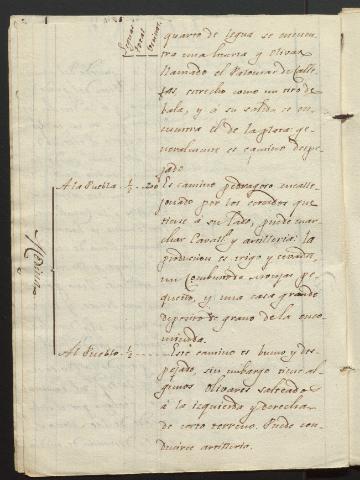 quarto de legua se encuen
tra una huerta y olivar
llamado el Palomar de Calle
jas, estrecho como un tiro de
bala, y a su salida se en
cuentra el de la plata: ge
neralmente es camino despe
jado
A la Puebla ½ 200 Es camino pedregoso encalle
jonado por los cercados que
tiene a su lado, puede mar
char Cavall.ª y artilleria: la
produccion es trigo y cevada,
un pe
queño, y una casa grande
deposito de grano de la enco
mienda.
Medina
Al Pueblo ½ Este camino es bueno y des
pejado, sin embargo tiene al
gunos olivares salteados
à la izquierda y derecha
de corto terreno. Puede con
ducirse artilleria.